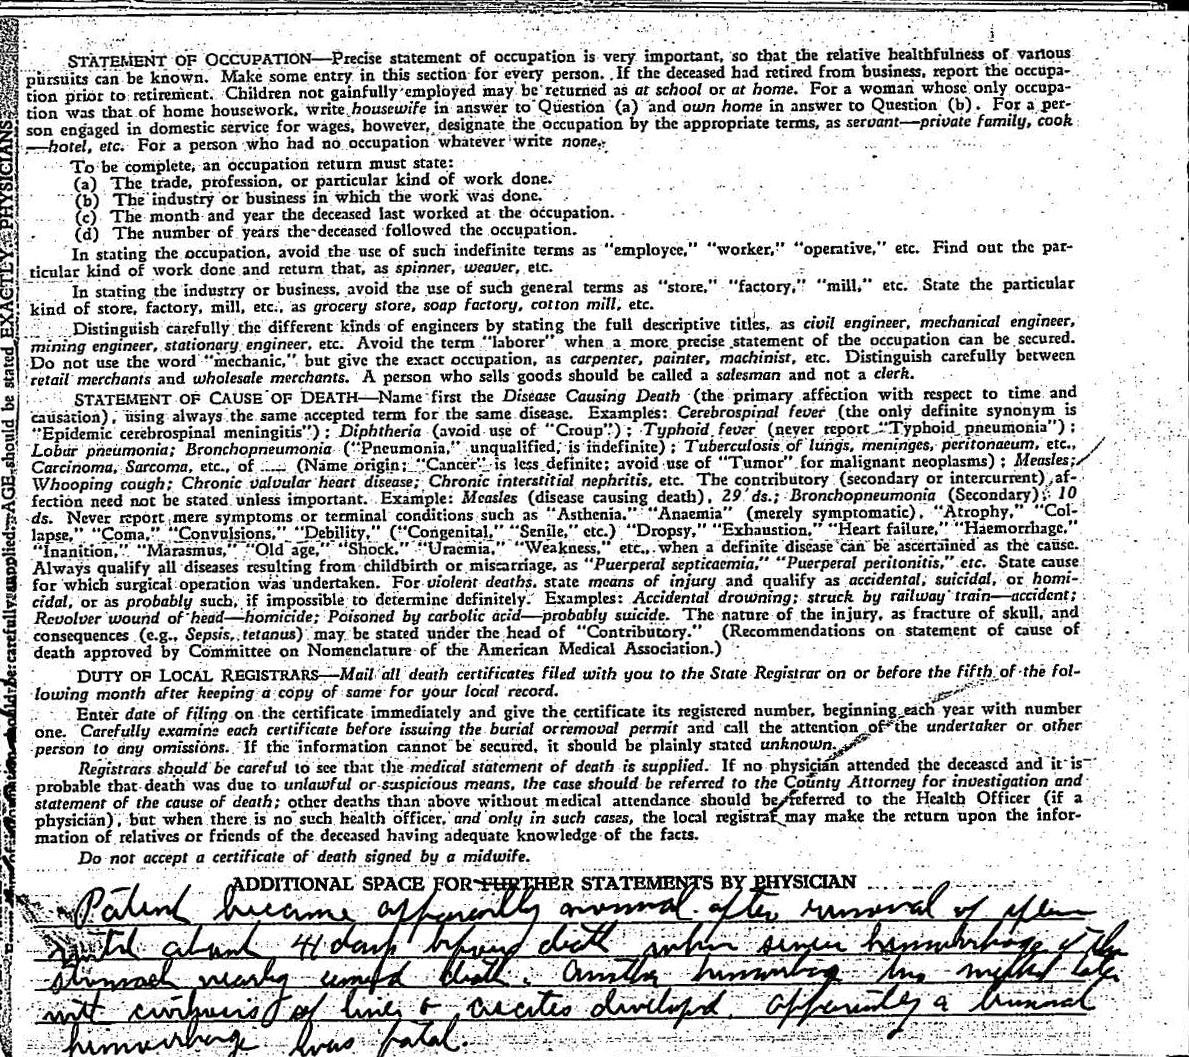 STATEMENT OF OCCUPATION—Precise statement of occupation is very important, so that the relative healthfulness of various
pursuits can be known. Make some entry in this section for every person. If the deceased had retired from business, report the occupa-
tion prior to retirement. Children not gainfully employed may be returned as at school or at home. For a woman whose only occupa-
tion was that of home housework, write housewife in answer to Question (a) and own home in answer to Question (b). For a per-
son engaged in domestic service for wages, however, designate the occupation by the appropriate terms, as servant—private family, cook
—hotel, etc. For a person who had no occupation whatever write none.
To be complete, an occupation return must state:
(a) The trade, profession, or particular kind of work done.
(b) The industry or business in which the work was done.
(c) The month and year the deceased last worked at the occupation.
(d) The number of years the deceased followed the occupation.
In stating the occupation, avoid the use of such indefinite terms as "employee," "worker," "operative," etc. Find out the par-
ticular kind of work done and return that, as spinner, weaver, etc.
In stating the industry or business, avoid the use of such general terms as "store," "factory," "mill," etc. State the particular
kind of store, factory, mill, etc., as grocery store, soap factory, cotton mill, etc.
Distinguish carefully the different kinds of engineers by stating the full descriptive titles, as civil engineer, mechanical engineer,
mining engineer, stationary engineer, etc. Avoid the term "laborer" when a more precise statement of the occupation can be secured.
Do not use the word "mechanic," but give the exact occupation, as carpenter, painter, machinist, etc. Distinguish carefully between
retail merchants and wholesale merchants. A person who sells goods should be called a salesman and not a clerk.
STATEMENT OF CAUSE OF DEATH—Name first the Disease Causing Death (the primary affection with respect to time and
causation), using always the same accepted term for the same disease. Examples: Cerebrospinal fever (the only definite synonym is
"Epidemic cerebrospinal meningitis"); Diphtheria (avoid use of "Croup"); Typhoid fever (never report "Typhoid pneumonia");
Lobar pneumonia; Bronchopneumonia ("Pneumonia," unqualified, is indefinite); Tuberculosis of lungs, meninges, peritonaeum, etc.,
Carcinoma, Sarcoma, etc., of ...... (Name origin; "Cancer" is less definite; avoid use of "Tumor" for malignant neoplasms); Measles;
Whooping cough; Chronic valvular heart disease; Chronic interstitial nephritis, etc. The contributory (secondary or intercurrent) af-
fection need not be stated unless important. Example: Measles (disease causing death), 29 ds.; Bronchopneumonia (Secondary), 10
ds. Never report mere symptoms or terminal conditions such as "Asthenia," "Anaemia" (merely symptomatic), "Atrophy," "Col-
lapse," "Coma," "Convulsions," "Debility," ("Congenital," "Senile," etc.) "Dropsy," "Exhaustion," "Heart failure," "Haemorrhage,"
"Inanition," "Marasmus," "Old age," "Shock," "Uraemia," "Weakness," etc., when a definite disease can be ascertained as the cause.
Always qualify all diseases resulting from childbirth or miscarriage, as "Puerperal septicaemia," "Puerperal peritonitis," etc. State cause
for which surgical operation was undertaken. For violent deaths, state means of injury and qualify as accidental, suicidal, or homi-
cidal, or as probably such, if impossible to determine definitely. Examples: Accidental drowning; struck by railway train—accident;
Revolver wound of head—homicide; Poisoned by carbolic acid—probably suicide. The nature of the injury, as fracture of skull, and
consequences (e.g., Sepsis, tetanus) may be stated under the head of "Contributory." (Recommendations on statement of cause of
death approved by Committee on Nomenclature of the American Medical Association.)
DUTY OF LOCAL REGISTRARS—Mail all death certificates filed with you to the State Registrar on or before the fifth of the fol-
lowing month after keeping a copy of same for your local record.
Enter date of filing on the certificate immediately and give the certificate its registered number, beginning each year with number
one. Carefully examine each certificate before issuing the burial or removal permit and call the attention of the undertaker or other
person to any omissions. If the information cannot be secured, it should be plainly stated unknown.
Registrars should be careful to see that the medical statement of death is supplied. If no physician attended the deceased and it is
probable that death was due to unlawful or suspicious means, the case should be referred to the County Attorney for investigation and
statement of the cause of death; other deaths than above without medical attendance should be referred to the Health Officer (if a
physician), but when there is no such health officer, and only in such cases, the local registrar may make the return upon the infor-
mation of relatives or friends of the deceased having adequate knowledge of the facts.
Do not accept a certificate of death signed by a midwife.
ADDITIONAL SPACE FOR FURTHER STATEMENTS BY PHYSICIAN
Patient became apparently normal after removal of spleen
until about 41 days before death when severe hemorrhage of the
stomach nearly caused death. Another hemorrhage later
with cirrhosis of liver & ascites developed. apparently a
hemorrhage was fatal.
should be carefully supplied. AGE should be stated EXACTLY. PHYSICIANS